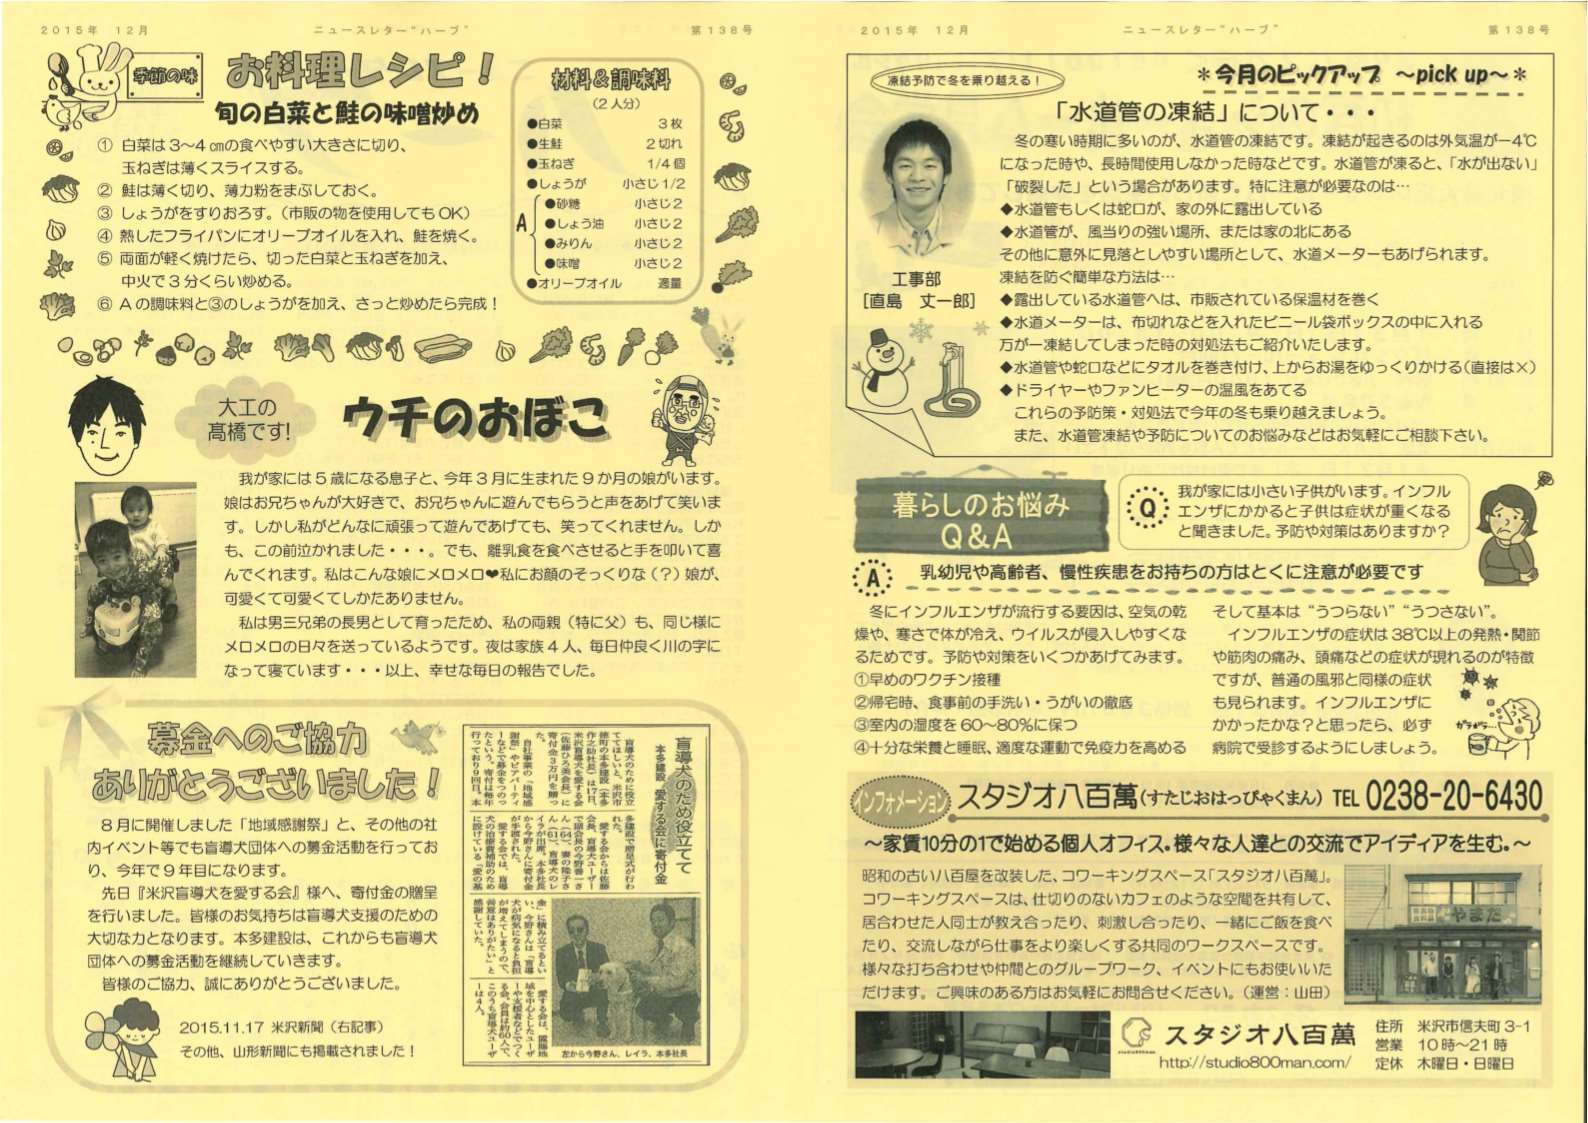 2015年 12月
ニュースレター“ハーブ”
第138号
季節の味
お料理レシピ！
旬の白菜と鮭の味噌炒め
① 白菜は３～４㎝の食べやすい大きさに切り、
玉ねぎは薄くスライスする。
② 鮭は薄く切り、薄力粉をまぶしておく。
③ しょうがをすりおろす。（市販の物を使用してもOK）
④ 熱したフライパンにオリーブオイルを入れ、鮭を焼く。
⑤ 両面が軽く焼けたら、切った白菜と玉ねぎを加え、
中火で３分くらい炒める。
⑥ Ａの調味料と③のしょうがを加え、さっと炒めたら完成！
材料＆調味料
（２人分）
●白菜 ３枚
●生鮭 ２切れ
●玉ねぎ 1/4個
●しょうが 小さじ1/2
A
●砂糖 小さじ２
●しょう油 小さじ２
●みりん 小さじ２
●味噌 小さじ２
●オリーブオイル 適量
大工の
髙橋です!
ウチのおぼこ
我が家には５歳になる息子と、今年３月に生まれた９か月の娘がいます。
娘はお兄ちゃんが大好きで、お兄ちゃんに遊んでもらうと声をあげて笑いま
す。しかし私がどんなに頑張って遊んであげても、笑ってくれません。しか
も、この前泣かれました・・・。でも、離乳食を食べさせると手を叩いて喜
んでくれます。私はこんな娘にメロメロ❤私にお顔のそっくりな（？）娘が、
可愛くて可愛くてしかたありません。
私は男三兄弟の長男として育ったため、私の両親（特に父）も、同じ様に
メロメロの日々を送っているようです。夜は家族４人、毎日仲良く川の字に
なって寝ています・・・以上、幸せな毎日の報告でした。
募金へのご協力
ありがとうございました！
８月に開催しました「地域感謝祭」と、その他の社
内イベント等でも盲導犬団体への募金活動を行ってお
り、今年で９年目になります。
先日『米沢盲導犬を愛する会』様へ、寄付金の贈呈
を行いました。皆様のお気持ちは盲導犬支援のための
大切な力となります。本多建設は、これからも盲導犬
団体への募金活動を継続していきます。
皆様のご協力、誠にありがとうございました。
2015.11.17 米沢新聞（右記事）
その他、山形新聞にも掲載されました！
盲導犬のため役立てて
本多建設 愛する会に寄付金
盲導犬のために役立
ててほしいと、米沢市
徳町の本多建設（本多
作之助社長）は17日、
米沢盲導犬を愛する会
（佐藤ひろ美会長）に
寄付金３万円を贈っ
た。
自社事業の「地域感
謝祭」やビアパーティ
ーなどで募金をつのっ
たという。寄付は毎年
行っており９回目。本
多建設で贈呈式が行わ
れた。
愛する会からは佐藤
会長、盲導犬ユーザー
で副会長の今野善一さ
ん（64）、妻の隆子さ
ん（61）、盲導犬のレ
イラが出席、本多社長
から今野さんに寄付金
が手渡された。
愛する会では、盲導
犬の治療費補助のため
に設けている「愛の基
金」に積み立てるとい
い、今野さんは「盲導
犬が病気になると負担
が増えてしまうので、
善意はありがたい」と
感謝していた。
愛する会は、置賜地
域を中心としたユーザ
ーや支援者などでつく
る会。会員は約60人で、
このうち盲導犬ユーザ
ーは４人。
左から今野さん、レイラ、本多社長
2015年 12月
ニュースレター“ハーブ”
第138号
凍結予防で冬を乗り越える！
＊今月のピックアップ ～pick up～＊
「水道管の凍結」について・・・
冬の寒い時期に多いのが、水道管の凍結です。凍結が起きるのは外気温が－4℃
になった時や、長時間使用しなかった時などです。水道管が凍ると、「水が出ない」
「破裂した」という場合があります。特に注意が必要なのは…
◆水道管もしくは蛇口が、家の外に露出している
◆水道管が、風当りの強い場所、または家の北にある
その他に意外に見落としやすい場所として、水道メーターもあげられます。
凍結を防ぐ簡単な方法は…
◆露出している水道管へは、市販されている保温材を巻く
◆水道メーターは、布切れなどを入れたビニール袋ボックスの中に入れる
万が一凍結してしまった時の対処法もご紹介いたします。
◆水道管や蛇口などにタオルを巻き付け、上からお湯をゆっくりかける（直接は×）
◆ドライヤーやファンヒーターの温風をあてる
これらの予防策・対処法で今年の冬も乗り越えましょう。
また、水道管凍結や予防についてのお悩みなどはお気軽にご相談下さい。
工事部
［直島 丈一郎］
暮らしのお悩み
Q&A
Q
我が家には小さい子供がいます。インフル
エンザにかかると子供は症状が重くなる
と聞きました。予防や対策はありますか？
A
乳幼児や高齢者、慢性疾患をお持ちの方はとくに注意が必要です
冬にインフルエンザが流行する要因は、空気の乾
燥や、寒さで体が冷え、ウイルスが侵入しやすくな
るためです。予防や対策をいくつかあげてみます。
①早めのワクチン接種
②帰宅時、食事前の手洗い・うがいの徹底
③室内の湿度を60～80％に保つ
④十分な栄養と睡眠、適度な運動で免疫力を高める
そして基本は“うつらない”“うつさない”。
インフルエンザの症状は38℃以上の発熱・関節
や筋肉の痛み、頭痛などの症状が現れるのが特徴
ですが、普通の風邪と同様の症状
も見られます。インフルエンザに
かかったかな？と思ったら、必ず
病院で受診するようにしましょう。
ガラガラ…
インフォメーション
スタジオ八百萬（すたじおはっぴゃくまん）TEL 0238-20-6430
～家賃10分の1で始める個人オフィス。様々な人達との交流でアイディアを生む。～
昭和の古い八百屋を改装した、コワーキングスペース「スタジオ八百萬」。
コワーキングスペースは、仕切りのないカフェのような空間を共有して、
居合わせた人同士が教え合ったり、刺激し合ったり、一緒にご飯を食べ
たり、交流しながら仕事をより楽しくする共同のワークスペースです。
様々な打ち合わせや仲間とのグループワーク、イベントにもお使いいた
だけます。ご興味のある方はお気軽にお問合せください。（運営：山田）
やまだ
スタジオ八百萬
http://studio800man.com/
住所 米沢市信夫町3-1
営業 10時～21時
定休 木曜日・日曜日